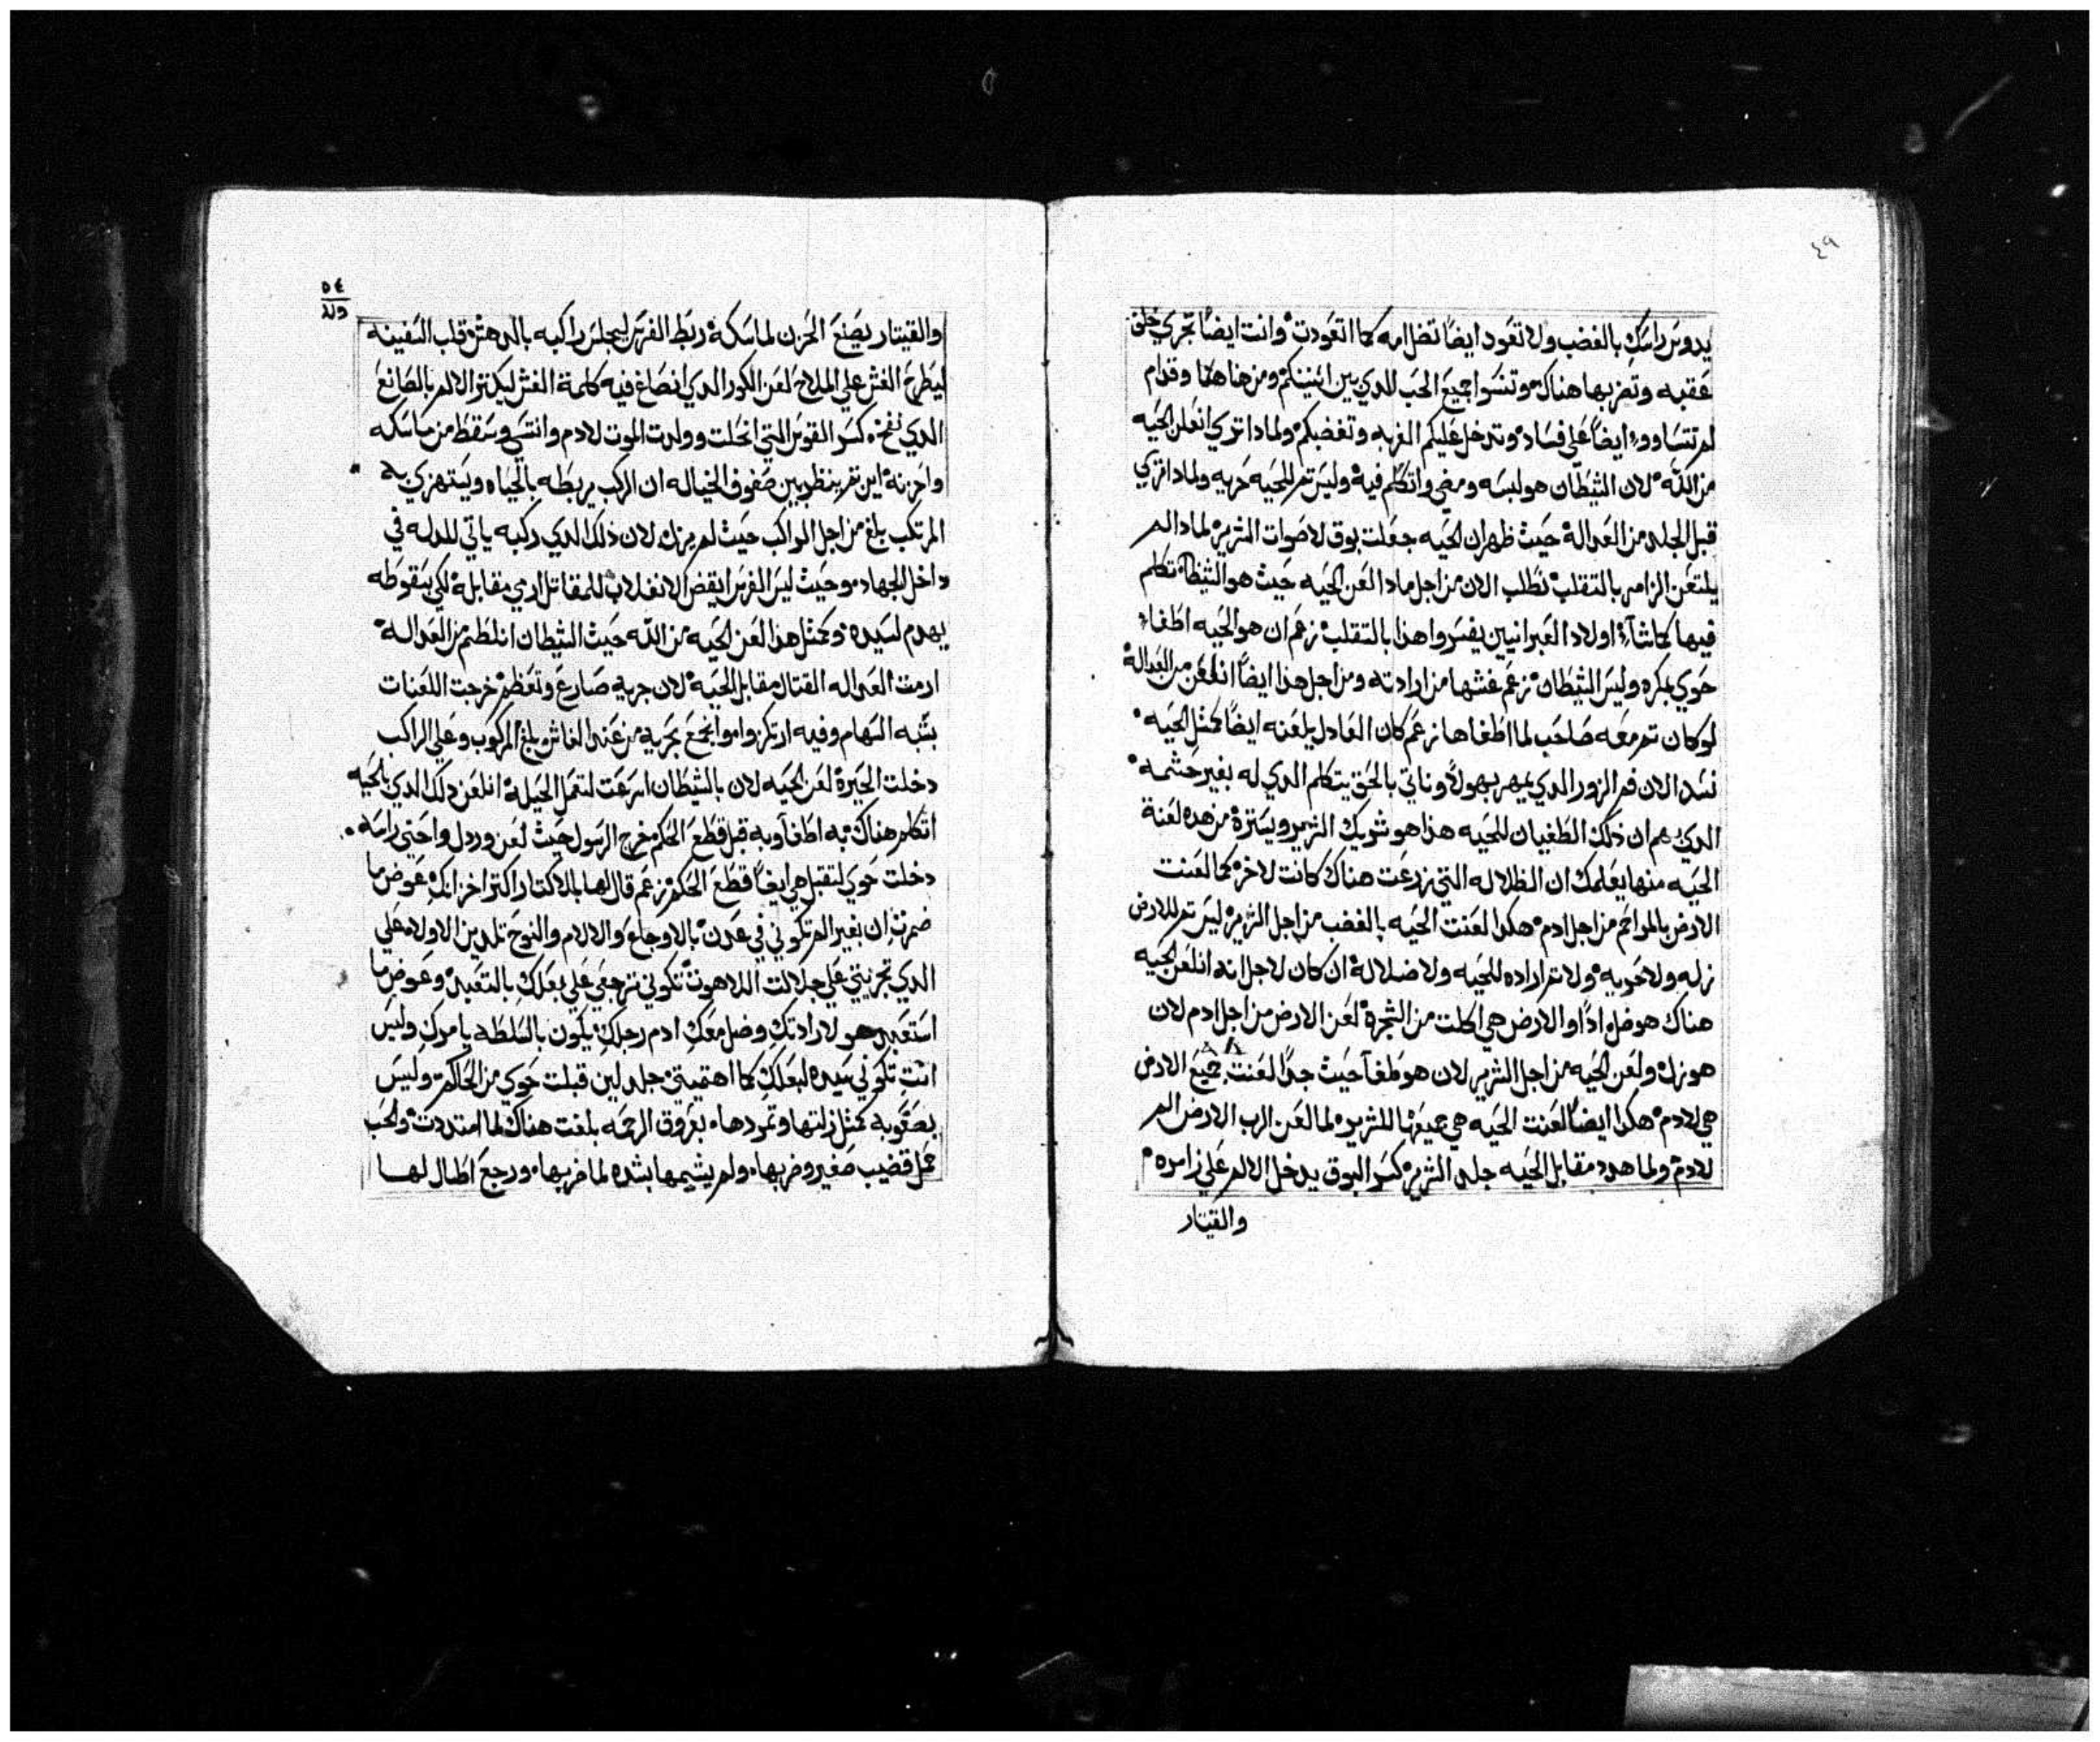 ٤٩
يدوس راسك بالغضب ولا تعود ايضاً تضل امه كما اتعودت وانت ايضاً تجري خلف
عقبه وتضربها هناك وتنسوا جميع الحب الدي بين اثنينكم ومن هاهنا وقدام
لم تتساووا ايضاً علي فساد وتدخل عليكم الغربه وتغضبكم ولمادا تري انعلن الحيه
من الله لان الشيطان هو لبسه ومضي واتكلم فيه وليس تم للحيه حريه ولمادا تري
قبل الجلد من العدالة حيث ظهر ان الحيه جعلت بوق لاصوات الشرير لمادا لم
يلتعن الزامر بالتقلب نطلب الان من اجل مادا لعن الحيه حيث هو الشيطان تكلم
فيها كماشآء اولاد العبرانيين يفسروا هذا بالتقلب زعم ان هو الحيه اطغاء
حوي بمكره وليس الشيطان زعم غشها من ارادته ومن اجل هذا ايضاً انلعن من العدالة
لو كان تم معه صاحب لما اطغاها زعم كان العادل يلعنه ايضاً كمثل الحيه
نسد الان فم الزور الدي يهدر بهولاً وناتي بالحق يتكلم الدي له بغير حشمه
الدي زعم ان ذلك الطغيان للحيه هذا هو شريك الشرير ويسترة من هده لعنة
الحيه منها يعلمك ان الظلاله التي زرعت هناك كانت لاخر كما لعنت
الارض بالمراحم من اجل ادم هكدا لعنت الحيه بالغضب من اجل الشرير ليس تم للارض
زله ولا حريه ولا تم اراده للحيه ولا ضلالة ان كان لاجل انه انلعن الحيه
هناك هو ضل اداً او الارض هي اكلت من الشجرة لعن الارض من اجل ادم لان
هو زل ولعن الحيه من اجل الشرير لان هو طغا حيث جداً لعنت جميع الارض
هي لادم هكدا ايضاً لعنت الحيه هي جميعها للشرير لما لعن الرب الارض الم
لادم ولما هدد مقابل الحيه جلد الشرير كسر البوق يدخل الالم علي زامره
والقيتار
٥٤
والقيتار يصنع الحزن لماسكه ربط الفرس ليجلس راكبه بالدهش قلب السفينه
ليطرح الغش علي الملاح لعن الكور الدي انصاغ فيه كلمة الغش ليكتر الالم بالصانع
الدي نفخه كسر القوس التي انحلت وولدت الموت لادم وانتسي وسقط من ماسكه
واحزنه اين تم ينظر بين صفوف الخياله ان الركب يربطه بالحياه ويستهزي به
المرتكب بلغ من اجل الراكب حيث لم يزل لان ذلك الدي ركبه ياتي للدله في
داخل الجهاد وحيث ليس الفرس ايقض الانفلاب للمقاتل الدي مقابله لكي بسقوطه
يهدم لسيده وكمثل هذا لعن الحيه من الله حيث الشيطان انلطم من العداله
ارمت العداله القتال مقابل الحيه لان جربه صارع وتعظم خرجت اللعنات
بشبه السهام وفيه ارتكزوا
دخلت الحيرة لعن الحيه لان بالشيطان اسرعت لتعمل الحيلة انلعن دلك الدي بالحيه
اتكلم هناك به اطغآ وبه قبل قطع الحكم خرج الرسول حيث لعن وردل واحني راسه
دخلت حوي لتقبل هي ايضاً قطع الحكم زعم قال لها بالاكتار اكتر احزانك عوض ما
ضمرتِ ان بغير الم تكوني في عدن بالاوجاع والالام والنوح تلدين الاولاد علي
الدي تجريتي علي جلالت اللاهوت تكوني ترجعي علي بعلكِ بالتعبد وعوض ما
استعبد هو لارادتكِ وضل معكِ ادم رجلكِ يكون بالسلطه يامركِ وليس
انتِ تكوني سيده لبعلكِ كما اهتميتي جلدلين قبلت حوي من الحاكم وليس
بصعوبه كمثل زلتها وتمردها بعروق الرحمه بلغت هناك لما امتددت والحب
عمل قضيب صغير وضربها ولم يشيمها بشده لما ضربها ورجع اطال لها